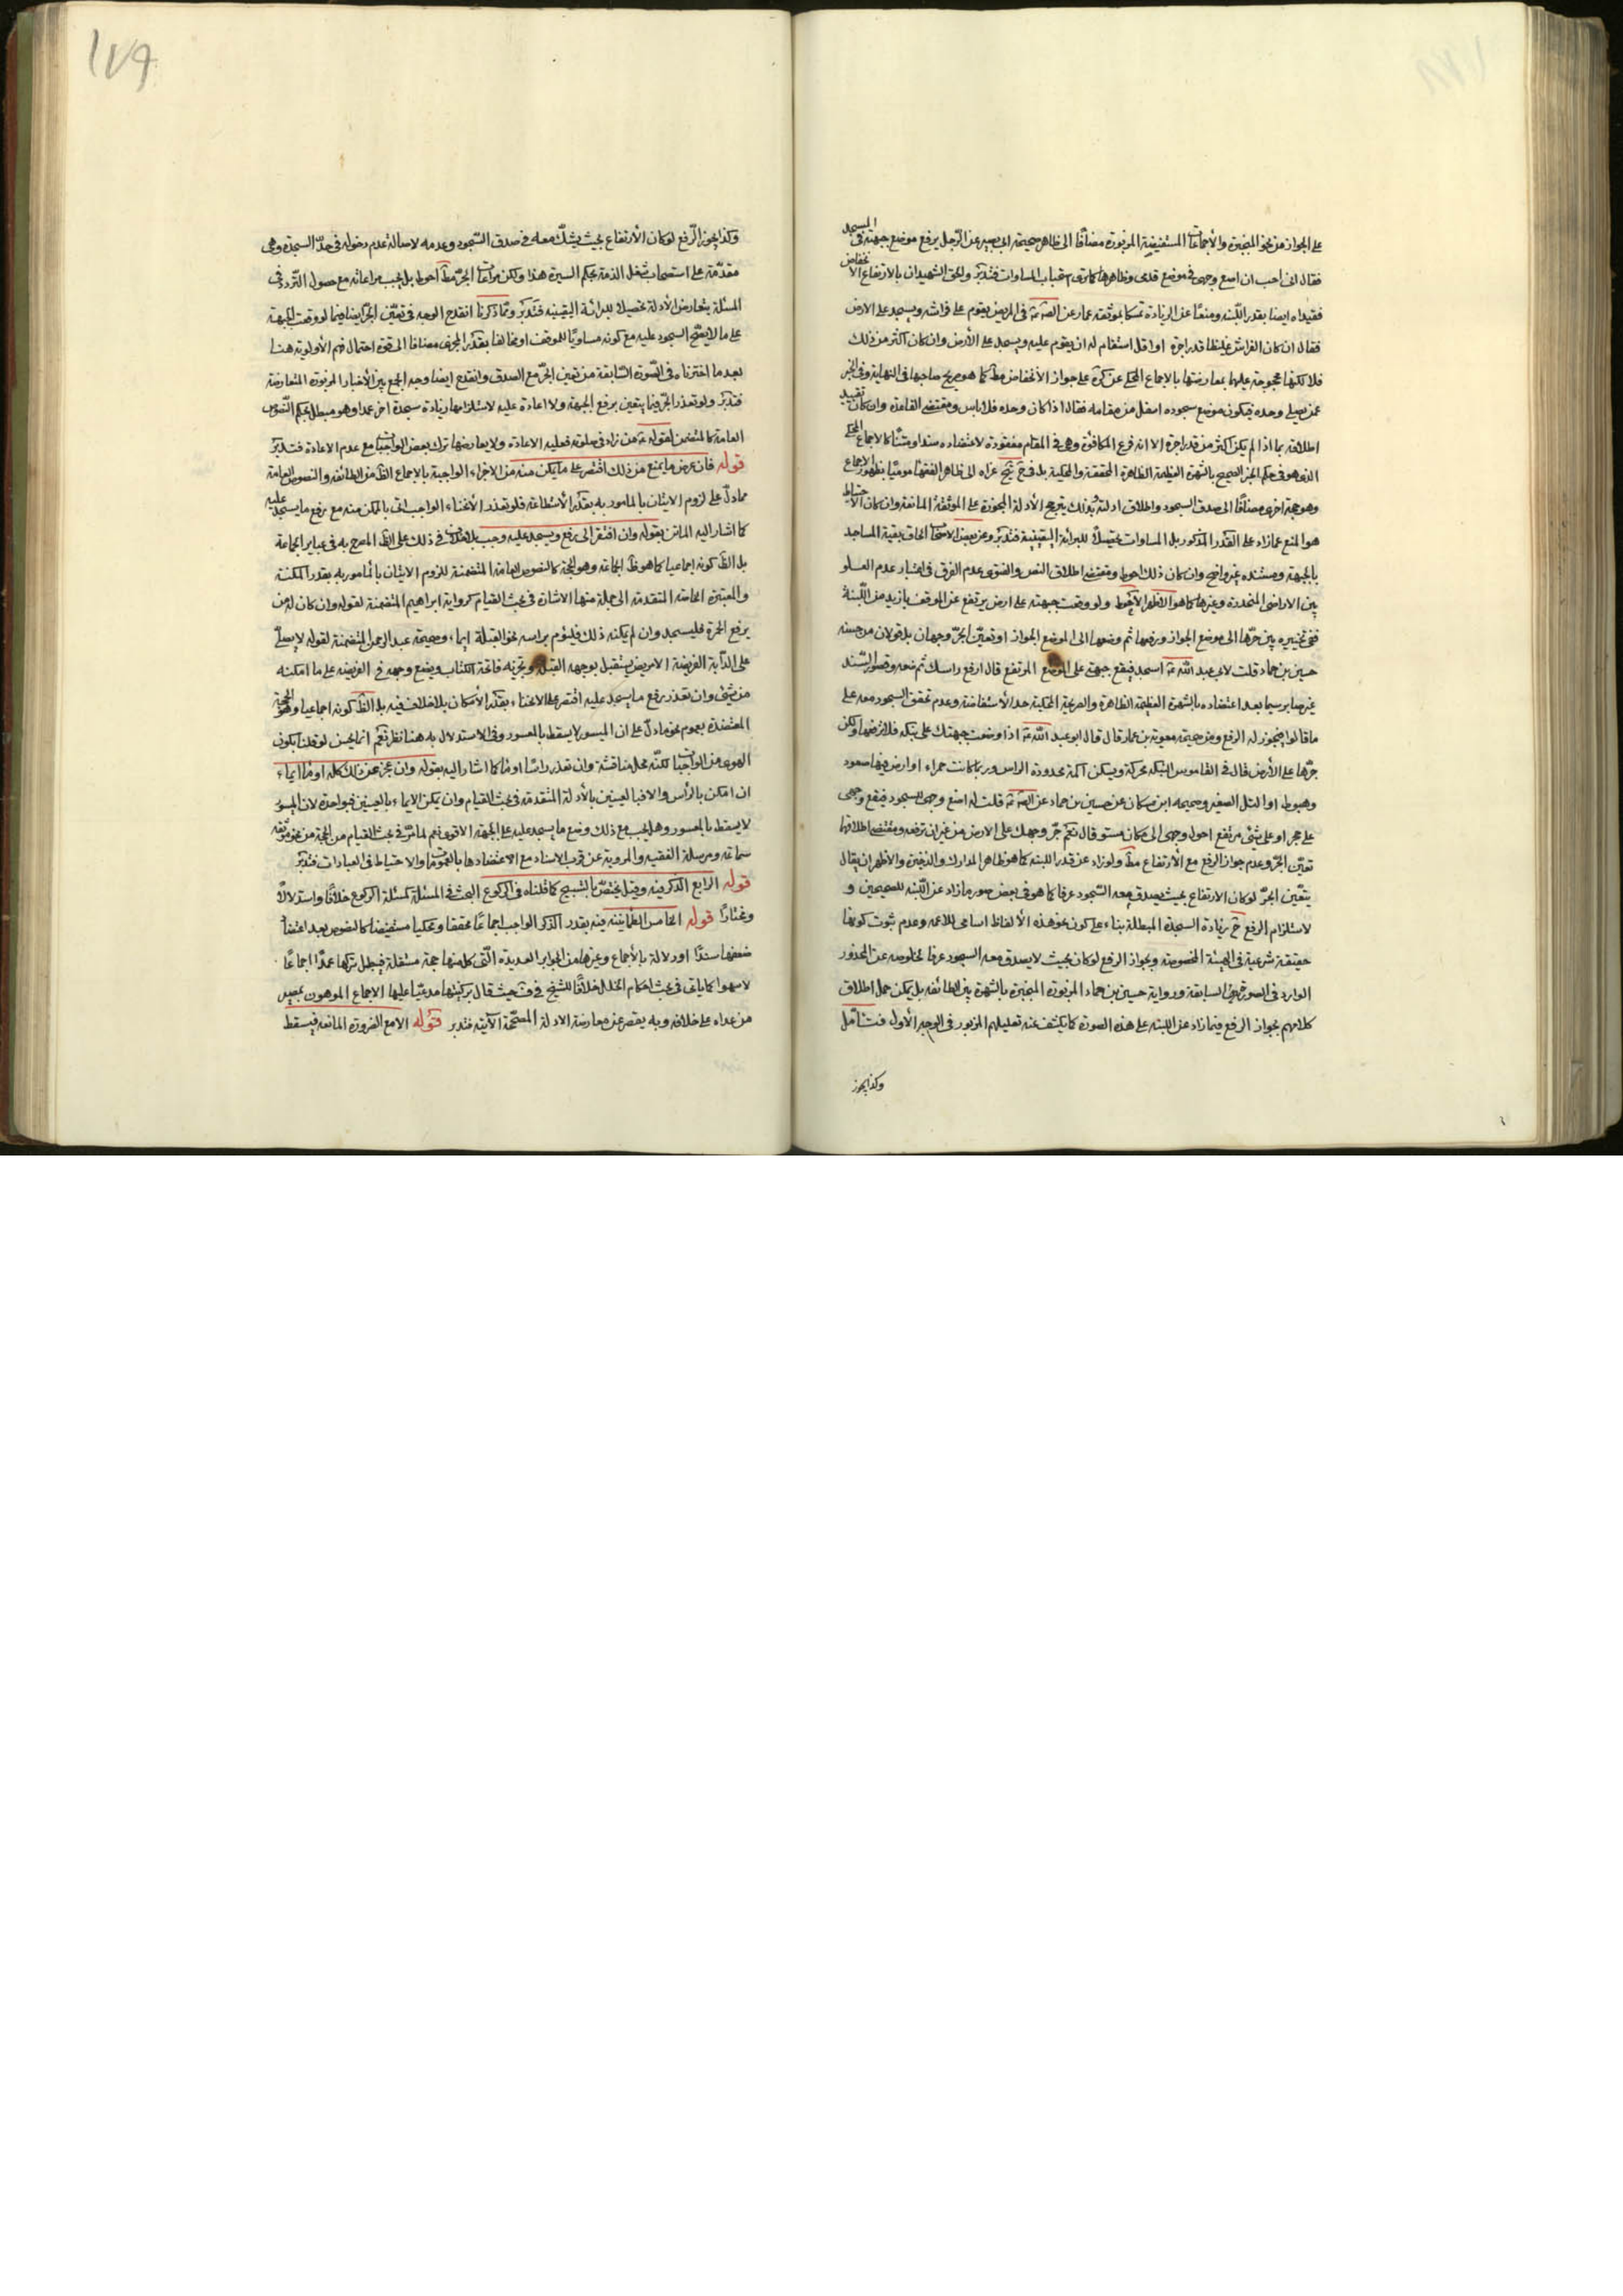 على الجواز من نحو المجبرة والاجماعات المستفيضة المزبورة مضافا الى ظاهر صحيحة ابى بصير عن الرجل يرفع موضع جبهته فى المسجد
فقال انى احب ان اضع وجهى فى موضع قدمى وظاهرها كما ترى استحباب المساوات فتدبر والحق الشهيدان بالارتفاع الانخفاض
فقيداه ايضا بقدر اللبنه ومنعا عن الزيادة تمسكا بموثقه عمار عن الصه فى المريض يقوم على فراشه ويسجد على الارض
فقال ان كان الفراش غليظا قدر اجرة او اقل استقام له ان يقوم عليه ويسجد على الأرض وان كان اكثر من ذلك
فلا لكنها محجوجة عليهما بمعارضتها بالاجماع المحكى عن كره على جواز الأنخفاض مط كما هو صريح صاحبها فى النهاية وفى الخبر
عمن يصلى وحده فيكون موضع سجوده اسفل من مقامه فقال اذا كان وحده فلا باس ومقتضى القاعدة وان كان تقييد
اطلاقه بما اذا لم يكن اكثر من قدر اجرة الا انه فرع المكافئة وهى فى المقام مفقودة لاعتضاده سندا ومتنا كالاجماع المحكى
الذى هو فى حكم الخبر الصحيح بالشهرة العظيمة الظاهرة المحققة والمحكية بل فى شرح عزاه الى ظاهر الفقهاء مومئا بظهور الاجماع
وهو حجة اخرى مضافا الى صدق السجود واطلاق ادلته بذلك يترجح الأدلة المجوزة على الموثقة المانعة وان كان الاحتياط
هو المنع عما زاد على القدر المذكور بل المساوات تحصيلا للبرائة اليقينية فتدبر وعن بعض الاصحاب الحاق بقية المساجد
بالجبهة ومستنده غير واضح وان كان ذلك احوط ومقتضى اطلاق النص والفتوى عدم الفرق فى اعتبار عدم العلو
بين الاراضى المنحدرة وغيرها كما هو الاظهر الأحوط ولو وقعت جبهته على ارض يرتفع عن الموقف بازيد من اللبنة
ففى تخييره بين جرها الى موضع الجواز ورفعها ثم وضعها الى الموضع الجواز او تعين الجر وجهان بل قولان من حسنه
حسين بن حماد قلت لابى عبد الله ع اسجد فيقع جبهتى على الموضع المرتفع قال ارفع راسك ثم ضعه وقصور السند
غير ضاير سيما بعد اعتضاده بالشهرة العظيمة الظاهرة والصريحة المحكية حد الأستفاضة وعدم تحقق السجود معه على
ما قالوا فيجوز له الرفع ومن صحيحة معوية بن عمار قال قال ابو عبد الله ع اذا وضعت جبهتك على نبكه فلا ترفعها ولكن
جرها على الأرض قال فى القاموس النبكه محركة ويسكن اكمة محدودة الراس وربما كانت حمراء او ارض فيها صعود
وهبوط او التل الصغير وصحيحه ابن مسكان عن حسين بن حماد عن الصه قلت له اضع وجهى للسجود فيقع وجهى
على حجر او على شئ مرتفع احول وجهى الى مكان مستو قال نعم جر وجهك على الارض من غير ان ترفعه ومقتضى اطلاقها
تعين الجر وعدم جواز الرفع مع الأرتفاع مط ولو زاد عن قدر اللبنه كما هو ظاهر المدارك والذخيرة والاظهر ان يقال
يتعين الجر لو كان الارتفاع بحيث يصدق معه السجود عرفا كما هو فى بعض صور ما زاد عن اللبنه للصحيحين و
لاستلزام الرفع ح زيادة السجدة المبطلة بناء على كون نحو هذه الألفاظ اسامى للاعم وعدم ثبوت كونها
حقيقة شرعية فى الهيئة المخصوصة وبجواز الرفع لو كان بحيث لا يصدق معه السجود عرفا لخلوصه عن المحذور
الوارد فى الصورة السابقة ورواية حسين بن حماد المزبورة المجبرة بالشهرة بين الطائفه بل يمكن حمل اطلاق
كلامهم بجواز الرفع فيما زاد عن اللبنه على هذه الصورة كما يكشف عنه تعليلهم المزبور فى الوجه الأول فتامل
وكذا يجوز
١٧٩
وكذا يجوز الرفع لو كان الأرتفاع بحيث يشك معه فى صدق السجود وعدمه لاصالة عدم دخوله فى حد السجدة وهى
مقدمة على استصحاب شغل الذمة بحكم السيرة هذا ولكن مراعات الجر مط احوط بل يجب مراعاته مع حصول التردد فى
المسئلة بتعارض الأدلة تحصيلا للبرائة اليقينيه فتدبر ومما ذكرنا انقدح الوجه فى تعين الجر ايضا فيما لو وقعت الجبهة
على ما لا يصح السجود عليه مع كونه مساويا للموقف او مخالفا بقدر المجزى مضافا الى قوة احتمال فهم الأولوية هنا
بعد ما اخترناه فى الصورة السابقة من تعين الجر مع الصدق وانقدح ايضا وجه الجمع بين الأخبار المزبورة المتعارضة
فتدبر ولو تعذر الجر فيما يتعين يرفع الجبهة ولا اعادة عليه لاستلزامها زيادة سجدة اخرى عمدا وهو مبطل بحكم النصوص
العامة كالمتضمن لقوله ع من زاد فى صلوته فعليه الاعادة ولا يعارضها ترك بعض الواجبات مع عدم الاعادة فتدبر
قوله فان عرض ما يمنع من ذلك اقتصر على ما يمكن منه من الاجزاء الواجبة بالاجماع الظ من الطائفه والنصوص العامة
مما دل على لزوم الاتيان بالمامور به بقدر الأستطاعة فلو تعذر الأنحناء الواجب اتى بالممكن منه مع رفع ما يسجد عليه
كما اشار اليه الماتن بقوله وان افتقر الى رفع ويسجد عليه وجب بلا خلاف فى ذلك على الظ المصرح به فى عباير الجماعة
بل الظ كونه اجماعيا كما هو ظ الجماعة وهو الحجة كالنصوص العامة المتضمنة للزوم الاتيان بالمامور به بقدر المكنة
والمعتبرة الخاصه المتقدمة الى جملة منها الاشارة فى بحث القيام كرواية ابراهيم المتضمنة لقوله وان كان له من
يرفع الخمرة فليسجد وان لم يمكنه ذلك فليوم براسه نحو القبلة ايماء وصحيحه عبد الرحمن المتضمنة لقوله لا يصلى
على الدابة الفريضة الا مريض يستقبل بوجهه القبلة وتجزيه فاتحة الكتاب ويضع وجهه فى الفريضه على ما امكنه
من شئ وان تعذر رفع ما يسجد عليه اقتصر على الانحناء بقدر الأمكان بلا خلاف فيه بل الظ كونه اجماعيا وهو الحجة
المعتضدة بعموم نحو ما دل على ان الميسور لا يسقط بالمعسور وفى الاستدلال به هنا نظر نعم انما يحسن لو قلنا بكون
الهوى من الواجبات لكنه محل مناقشة وان تعذر راسًا اومأ كما اشار اليه بقوله وان عجز عن ذلك كله اومأ ايماء
ان امكن بالرأس والا فبالعينين بالأدلة المتقدمة فى بحث القيام وان يكن الايماء بالعينين فبواحدة لان الميسور
لا يسقط بالمعسور وهل يجب مع ذلك وضع ما يسجد عليه على الجبهة الاقوى نعم لما مر فى بحث القيام من الحجة من نحو موثقه
سماعة ومرسلة الفقيه والمروية عن قرب الاسناد مع الاعتضادها بالعمومات والاحتياط فى العبادات فتدبر
قوله الرابع الذكر فيه وقيل يختص بالتسبيح كما قلناه فى الركوع البحث فى المسئلة كمسئلة الركوع خلافا واستدلالا
ومختارا قوله الخامس الطمانينه فيه بقدر الذكر الواجب اجماعا محققا ومحكيا مستفيضا كالنصوص بعد اعتضاد
ضعفها سندا او دلالة بالأجماع وغيرها من الجوابر العديدة التى كل منها حجة مستقلة فيبطل بتركها عمدا اجماعا
لا سهوا كما ياتى فى بحث احكام الخلل خلافا للشيخ فى ف حيث قال بركنيتها مدعيا عليها الاجماع الموهون بمصير
من عداه على خلافه وبه يقصر عن معارضة الادلة المصححة الآتية فتدبر قوله الا مع الضرورة المانعة فيسقط